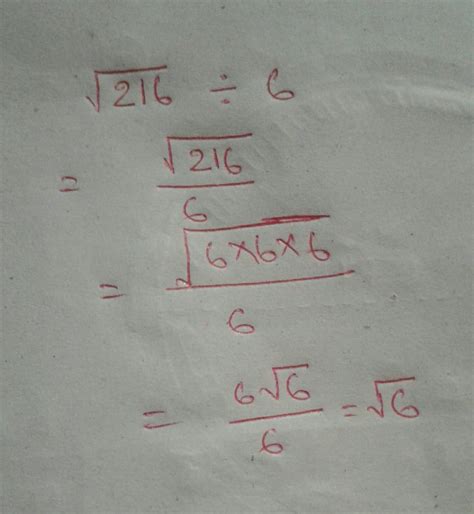 √216 ÷ 6
= √216/6
= √6×6×6/6
= 6√6/6 = √6